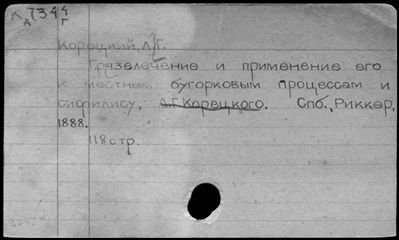 А 734 4/Г
Корецкий, А.Г.
Грязелечение и применение его
к местным бугорковым процессам и
сифилису, А.Г. Корецкого. Спб., Риккер,
1888.
118 стр.